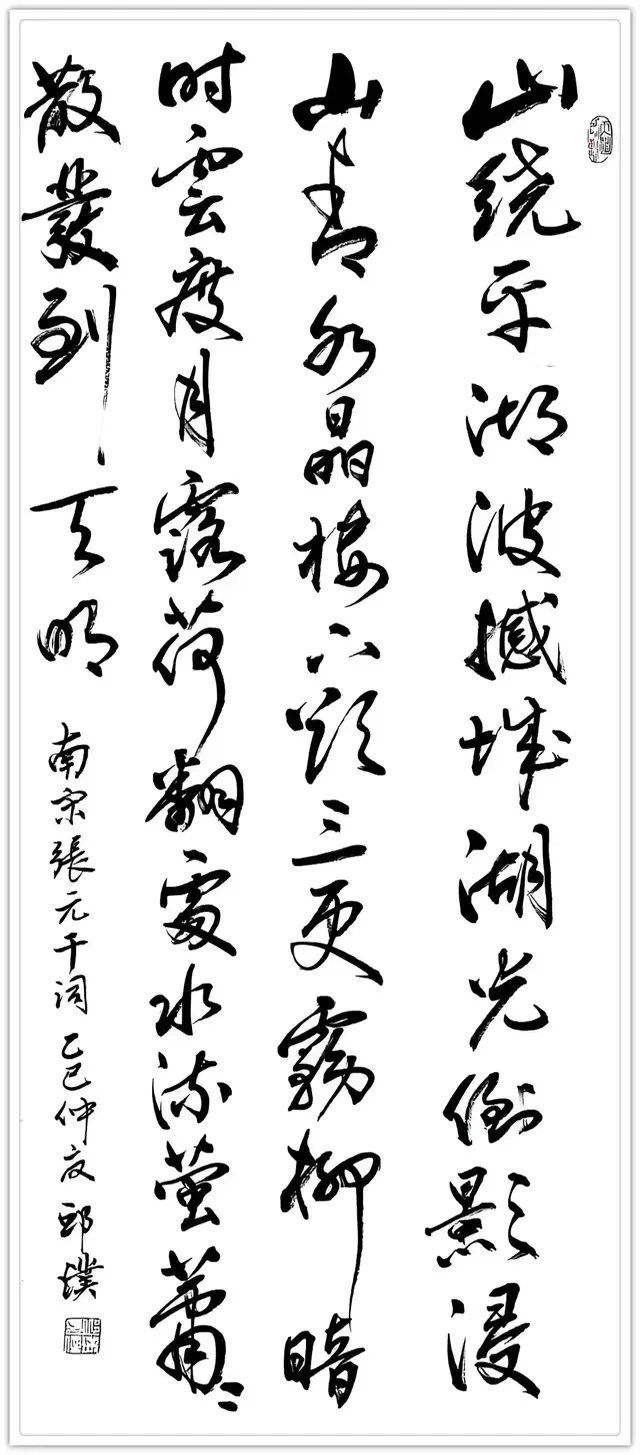 山绕平湖波撼城湖光倒影浸
山青水晶楼下欲三更霧柳暗
时雲度月露荷翻處水流萤蕭〻
散發到天明
南宋張元干词 乙巳仲夏 邱墣